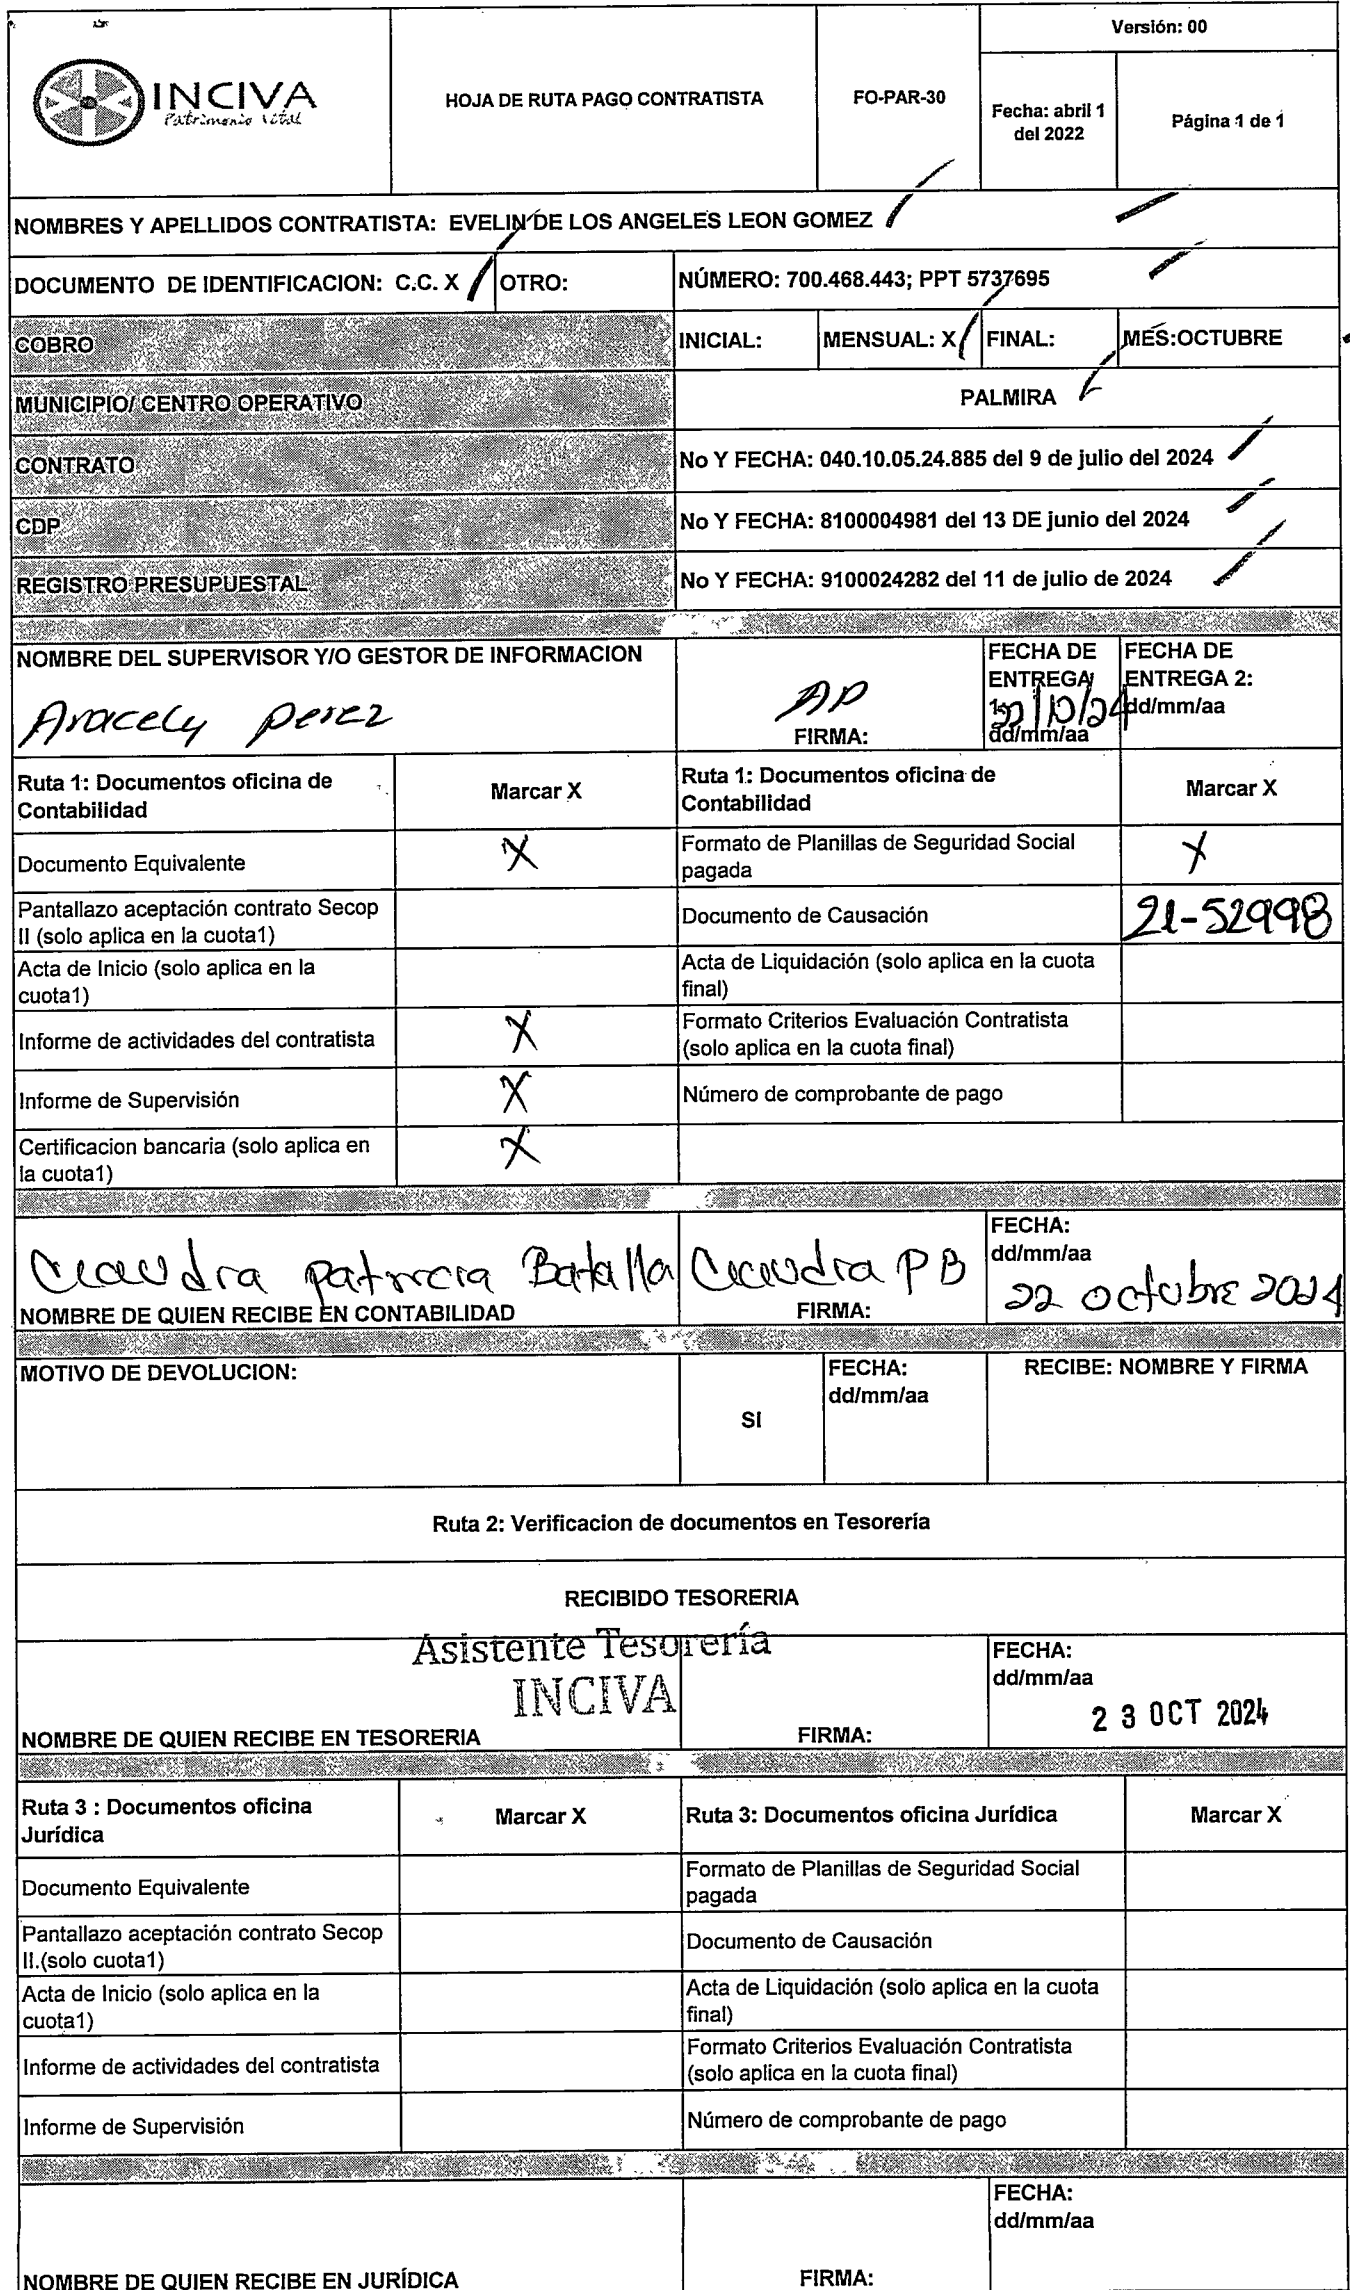 INCIVA
Patrimonio Vital
HOJA DE RUTA PAGO CONTRATISTA
FO-PAR-30
Versión: 00
Fecha: abril 1
del 2022
Página 1 de 1
NOMBRES Y APELLIDOS CONTRATISTA: EVELIN DE LOS ANGELES LEON GOMEZ
DOCUMENTO DE IDENTIFICACION: C.C. X
OTRO:
NÚMERO: 700.468.443; PPT 5737695
COBRO
INICIAL:
MENSUAL: X
FINAL:
MES:OCTUBRE
MUNICIPIO/ CENTRO OPERATIVO
PALMIRA
CONTRATO
No Y FECHA: 040.10.05.24.885 del 9 de julio del 2024
CDP
No Y FECHA: 8100004981 del 13 DE junio del 2024
REGISTRO PRESUPUESTAL
No Y FECHA: 9100024282 del 11 de julio de 2024
NOMBRE DEL SUPERVISOR Y/O GESTOR DE INFORMACION
Aracely perez
AP
FIRMA:
FECHA DE
ENTREGA
1:
22/10/24
dd/mm/aa
FECHA DE
ENTREGA 2:
dd/mm/aa
Ruta 1: Documentos oficina de
Contabilidad
Marcar X
Ruta 1: Documentos oficina de
Contabilidad
Marcar X
Documento Equivalente
X
Formato de Planillas de Seguridad Social
pagada
X
Pantallazo aceptación contrato Secop
II (solo aplica en la cuota1)
Documento de Causación
21-52998
Acta de Inicio (solo aplica en la
cuota1)
Acta de Liquidación (solo aplica en la cuota
final)
Informe de actividades del contratista
X
Formato Criterios Evaluación Contratista
(solo aplica en la cuota final)
Informe de Supervisión
X
Número de comprobante de pago
Certificacion bancaria (solo aplica en
la cuota1)
X
Claudia patricia Batalla
NOMBRE DE QUIEN RECIBE EN CONTABILIDAD
Claudia P B
FIRMA:
FECHA:
dd/mm/aa
22 octubre 2024
MOTIVO DE DEVOLUCION:
SI
FECHA:
dd/mm/aa
RECIBE: NOMBRE Y FIRMA
Ruta 2: Verificacion de documentos en Tesorería
RECIBIDO TESORERIA
Asistente Tesorería
INCIVA
NOMBRE DE QUIEN RECIBE EN TESORERIA
FIRMA:
FECHA:
dd/mm/aa
2 3 OCT 2024
Ruta 3 : Documentos oficina
Jurídica
Marcar X
Ruta 3: Documentos oficina Jurídica
Marcar X
Documento Equivalente
Formato de Planillas de Seguridad Social
pagada
Pantallazo aceptación contrato Secop
II.(solo cuota1)
Documento de Causación
Acta de Inicio (solo aplica en la
cuota1)
Acta de Liquidación (solo aplica en la cuota
final)
Informe de actividades del contratista
Formato Criterios Evaluación Contratista
(solo aplica en la cuota final)
Informe de Supervisión
Número de comprobante de pago
NOMBRE DE QUIEN RECIBE EN JURÍDICA
FIRMA:
FECHA:
dd/mm/aa